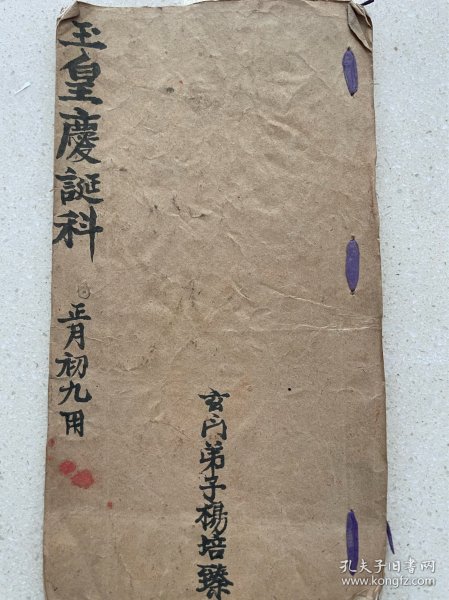 玉皇慶誕科
正月初九用
玄门弟子楊培臻
孔夫子旧书网
http://www.kongfz.com